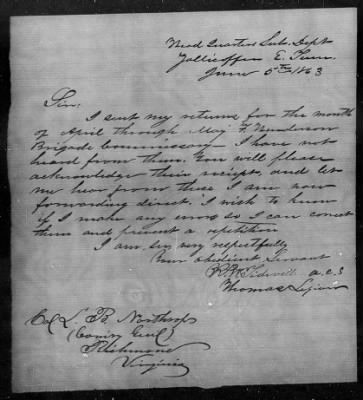 Head Quarters Sub. Dept
Zollicoffer E. Tenn.
June 5th 1863
Sir:
I sent my returns for the month
of April through Maj F. Henderson
Brigade Commissary - I have not
heard from them. You will please
acknowledge their receipt, and let
me hear from these I am now
forwarding direct. I wish to know
if I make any errors so I can correct
them and prevent a repetition
I am, sir, very respectfully
Your obedient Servant
A.C.S
Thomas Legion
Col L. B. Northrop
(Comry Genl)
Richmond
Virginia